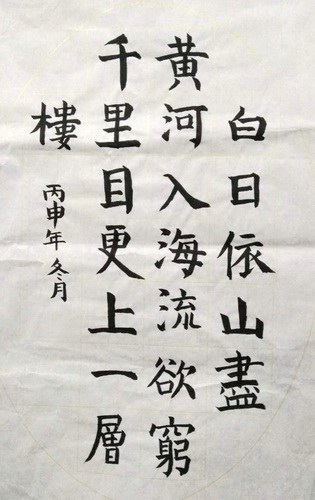 白日依山盡
黄河入海流欲窮
千里目更上一層
樓
丙申年冬月